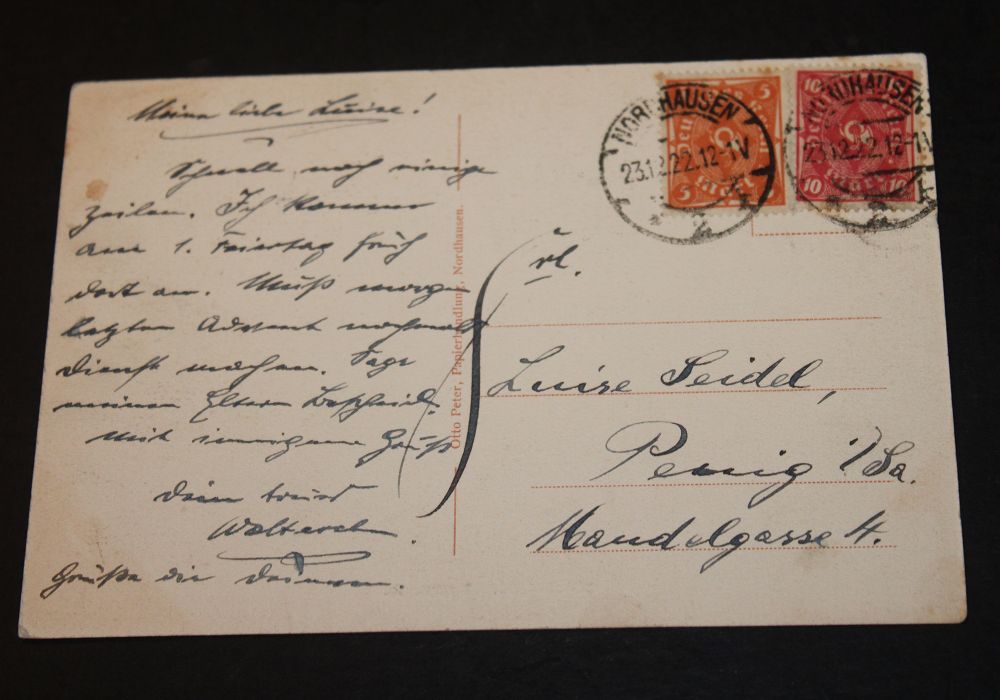 Meine liebe Luise!
Schnell noch einige
Zeilen. Ich komme
am 1. Feiertag früh
dort an. Muß morgen
letzten Advent nochmals
Dienst machen. Sage
meinen Eltern Bescheid.
Mit innigem Gruß
Dein treuer
Grüße die Deinen.
Otto Peter, Papierhandlung, Nordhausen.
NORDHAUSEN
23.12.22.12-1V
5
5
5
Mark
NORDHAUSEN
23.12.22.12-1V
10
10
10
Mark
Frl.
Luise Seidel,
Penig i/Sa.
Mandelgasse 4.